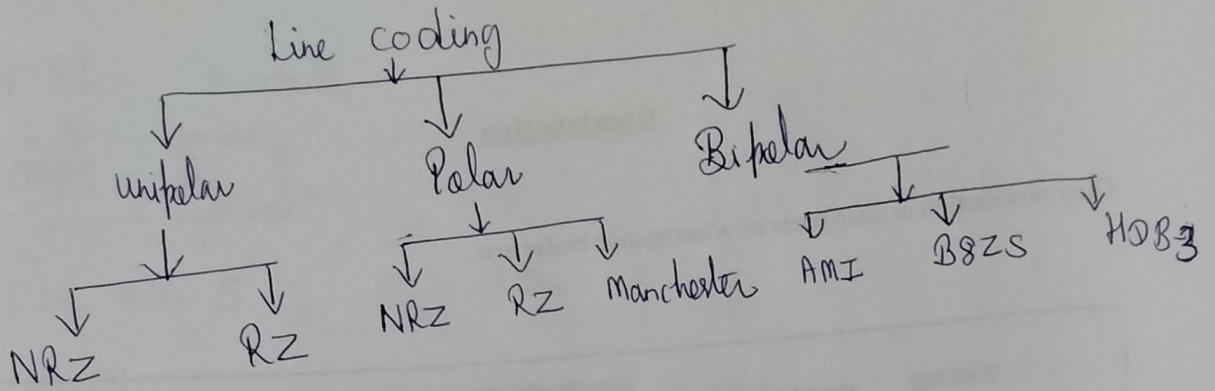 Line coding
unipolar Polar Bipolar
NRZ RZ NRZ RZ Manchester AMI B8ZS HDB3